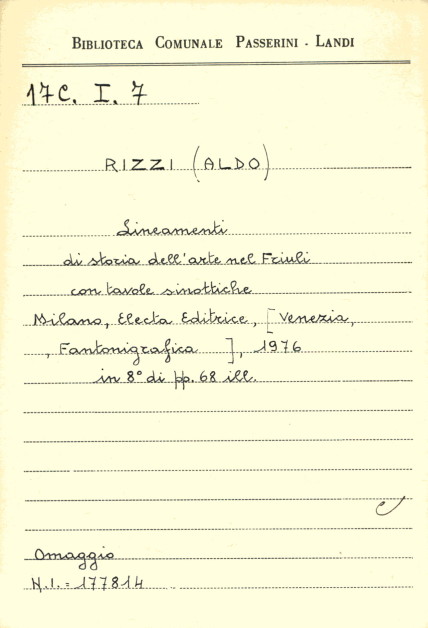 BIBLIOTECA COMUNALE PASSERINI - LANDI
17C. I. 7
RIZZI (ALDO)
Lineamenti
di storia dell'arte nel Friuli
con tavole sinottiche
Milano, Electa Editrice, [Venezia,
, Fantonigrafica ], 1976
in 8° di pp. 68 ill.
Omaggio
N.I. = 177814